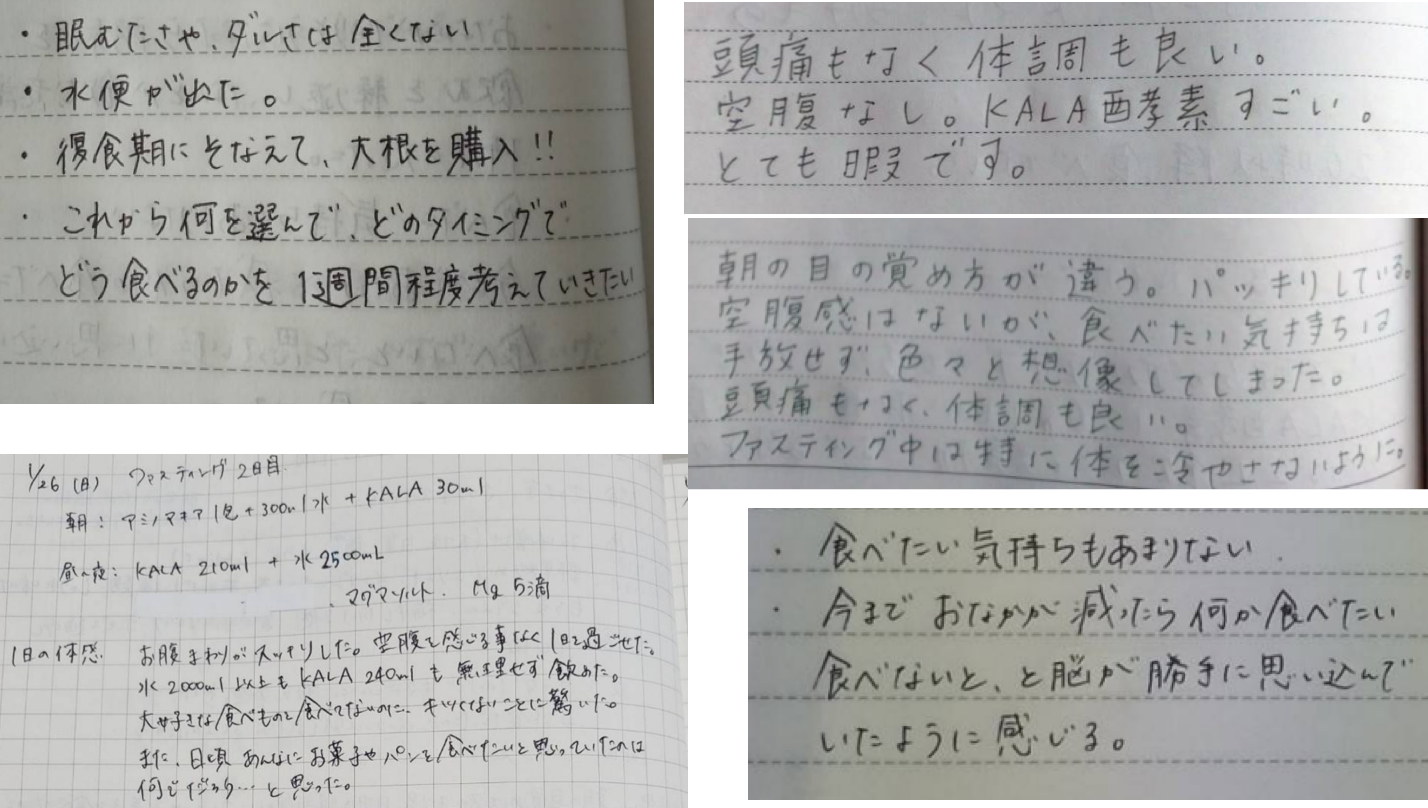 ・眠むたさや、ダルさは全くない
・水便が出た。
・復食期にそなえて、大根を購入!!
・これから何を選んで、どのタイミングで
どう食べるのかを1週間程度考えていきたい
頭痛もなく体調も良い。
空腹なし。KALA酵素すごい。
とても暇です。
朝の目の覚め方が違う。パッキリしている。
空腹感はないが、食べたい気持ちは
手放せず、色々と想像してしまった。
頭痛もなく、体調も良い。
ファスティング中は特に体を冷やさないように。
1/26(日) ファスティング2日目
朝: アミノマキア1包+300ml水 + KALA 30ml
昼〜夜: KALA 210ml + 水2500mL
、マグマソルト. Mg 5滴
1日の体感 お腹まわりがスッキリした。空腹を感じる事なく1日を過ごせた。
水2000ml以上もKALA 240mlも無理せず飲めた。
大好きな食べものを食べてないのに、キツくないことに驚いた。
また、日頃あんなにお菓子やパンを食べたいと思っていたのは
何でだろう…と思った。
・食べたい気持ちもあまりない.
・今までおなかが減ったら何か食べたい
食べないと、と脳が勝手に思い込んで
いたように感じる。